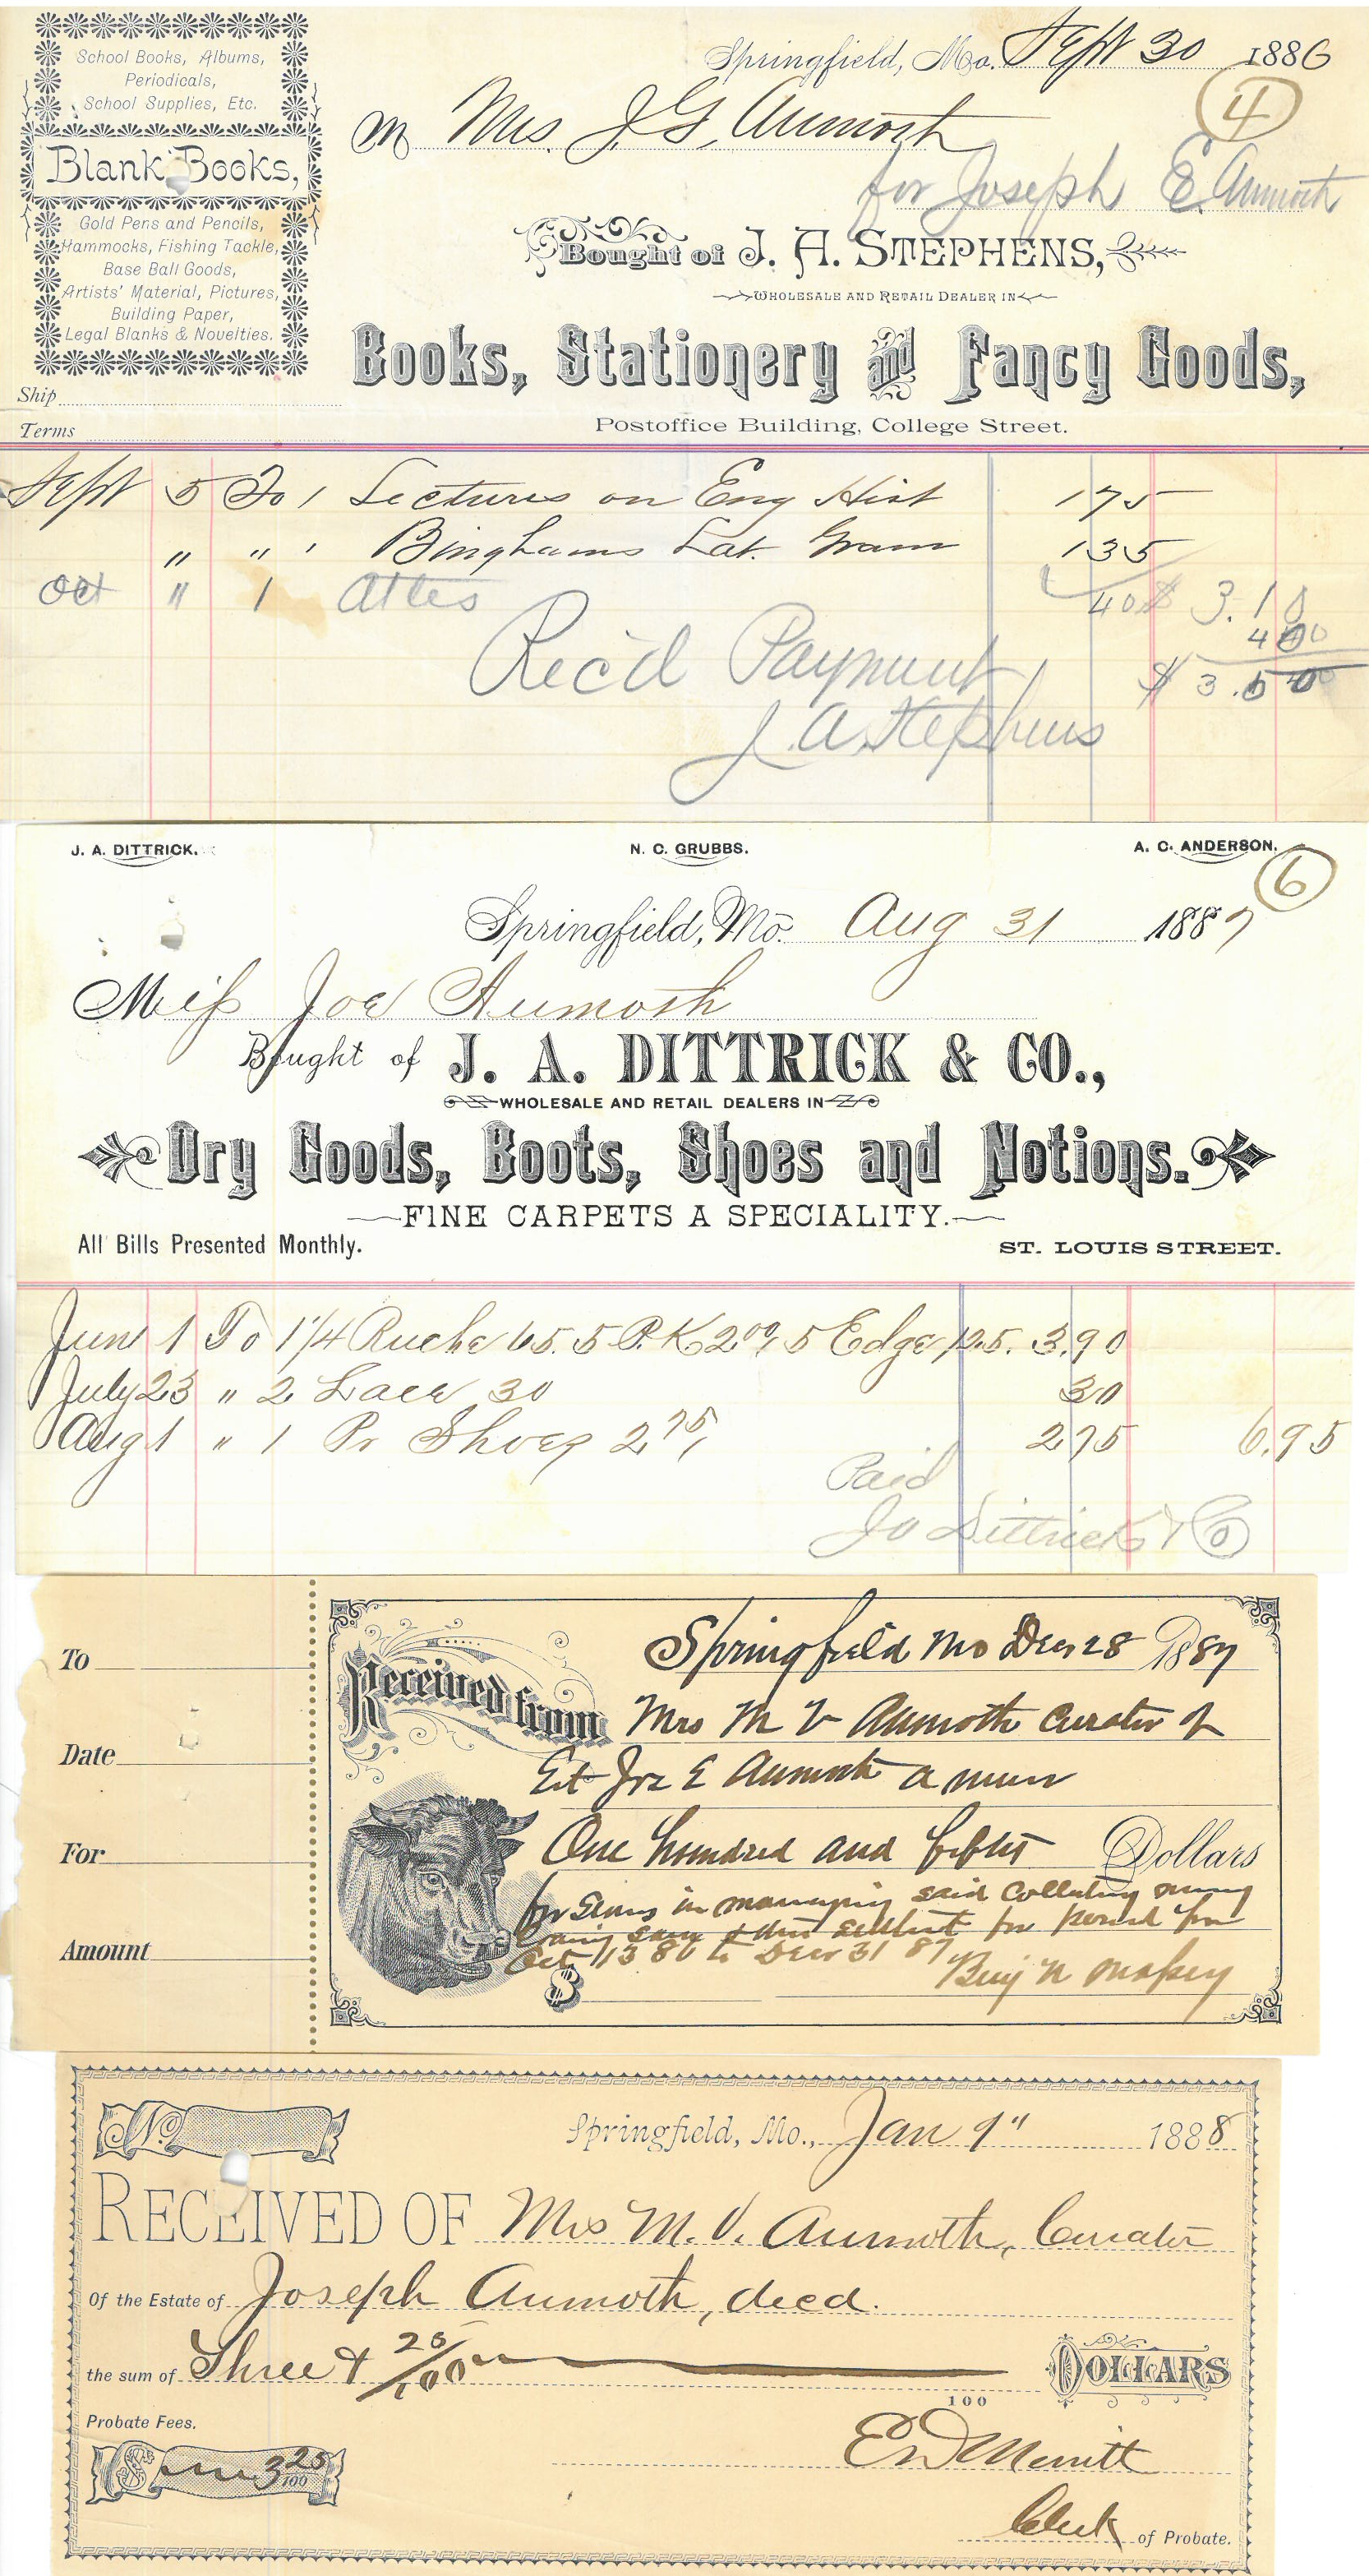 School Books, Albums,
Periodicals,
School Supplies, Etc.
Blank Books,
Gold Pens and Pencils,
Hammocks, Fishing Tackle,
Base Ball Goods,
Artists' Material, Pictures,
Building Paper,
Legal Blanks & Novelties.
Ship
Terms
Springfield, Mo. Sept 30 1886
4
M Mrs. J. G. Aumoth
for Joseph E. Aumoth
Bought of J. A. STEPHENS,
WHOLESALE AND RETAIL DEALER IN
Books, Stationery and Fancy Goods,
Postoffice Building, College Street.
Sept 5 To 1 Lectures on Eng Hist 175
" " 1 Binghams Lat. Gram 135
Oct " 1 Atles 40 $ 3.10
40
Rec'd Payment $ 3.50
J. A. Stephens
J. A. DITTRICK. N. C. GRUBBS. A. C. ANDERSON.
6
Springfield, Mo. Aug 31 1887
Miss Joe Aumoth
Bought of J. A. DITTRICK & CO.,
WHOLESALE AND RETAIL DEALERS IN
Dry Goods, Boots, Shoes and Notions.
FINE CARPETS A SPECIALITY.
All Bills Presented Monthly. ST. LOUIS STREET.
June 1 To 1 1/4 Ruche 65. 5 P.K 2.00, 5 Edge 1.25. 3.90
July 23 " 2 Lace 30 30
Aug 1 " 1 Pr Shoes 2 75, 2 75 6.95
Paid
Jo Dittrick & Co
To
Date
For
Amount
Springfield Mo Decr 28 1887
Received from Mrs M V Aumoth Curator of
Est Joe E Aumoth a minor
One hundred and fifty Dollars
for in managing said Collecting money
same & settlmt for period from
Oct 13 86 to Decr 31 87
$ Benj N Massey
No.
Springfield, Mo., Jan 9" 1888
RECEIVED OF Mrs M. V. Aumoth, Curator
Of the Estate of Joseph Aumoth, decd.
the sum of Three & 25/100 DOLLARS
100
Probate Fees.
$ 3 25/100
E D Merritt
Clerk of Probate.